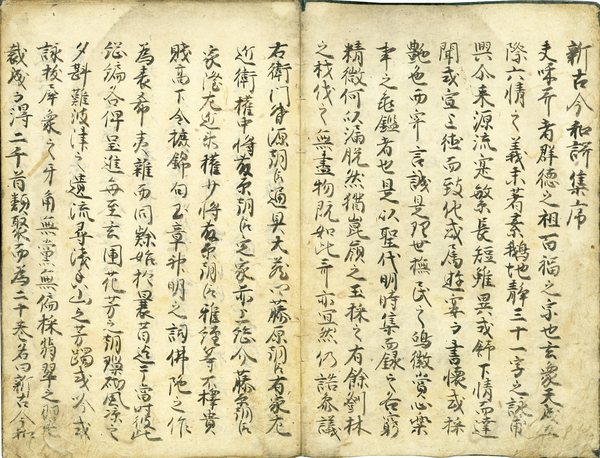 新古今和謌集序
夫和哥者群徳之祖百福之宗也玄象天成五
際六情之義未著素鵞地静三十一字之詠甫
興尒来源流寔繁長短雖異或抒下情而達
聞或宣上徳而致化或属遊宴而書懐或採
艶色而寄言誠是理世撫民之鴻徽賞心楽
事之亀鑑者也是以聖代明時集而録之各窮
精微何以漏脱然猶崑嶺之玉採之有餘鄧林
之材伐之無盡物既如此哥亦宜然仍詔参議
右衛門督源朝臣通具大蔵卿藤原朝臣有家左
近衛権中将藤原朝臣定家前上総介藤原朝臣
家隆左近衛権少将藤原朝臣雅経等不択貴
賤高下令摭錦句玉章神明之詞佛陀之作
為表希夷雑而同隷始於曩昔迄于當時彼此
総編各俾呈進毎至玄圃花芳之朝璅砌風涼之
夕斟難波津之遺流尋浅香山之芳躅或吟或
詠抜犀象之牙角無黨無偏採翡翠之羽毛
裁成而得二千首類聚而為二十巻名曰新古今和